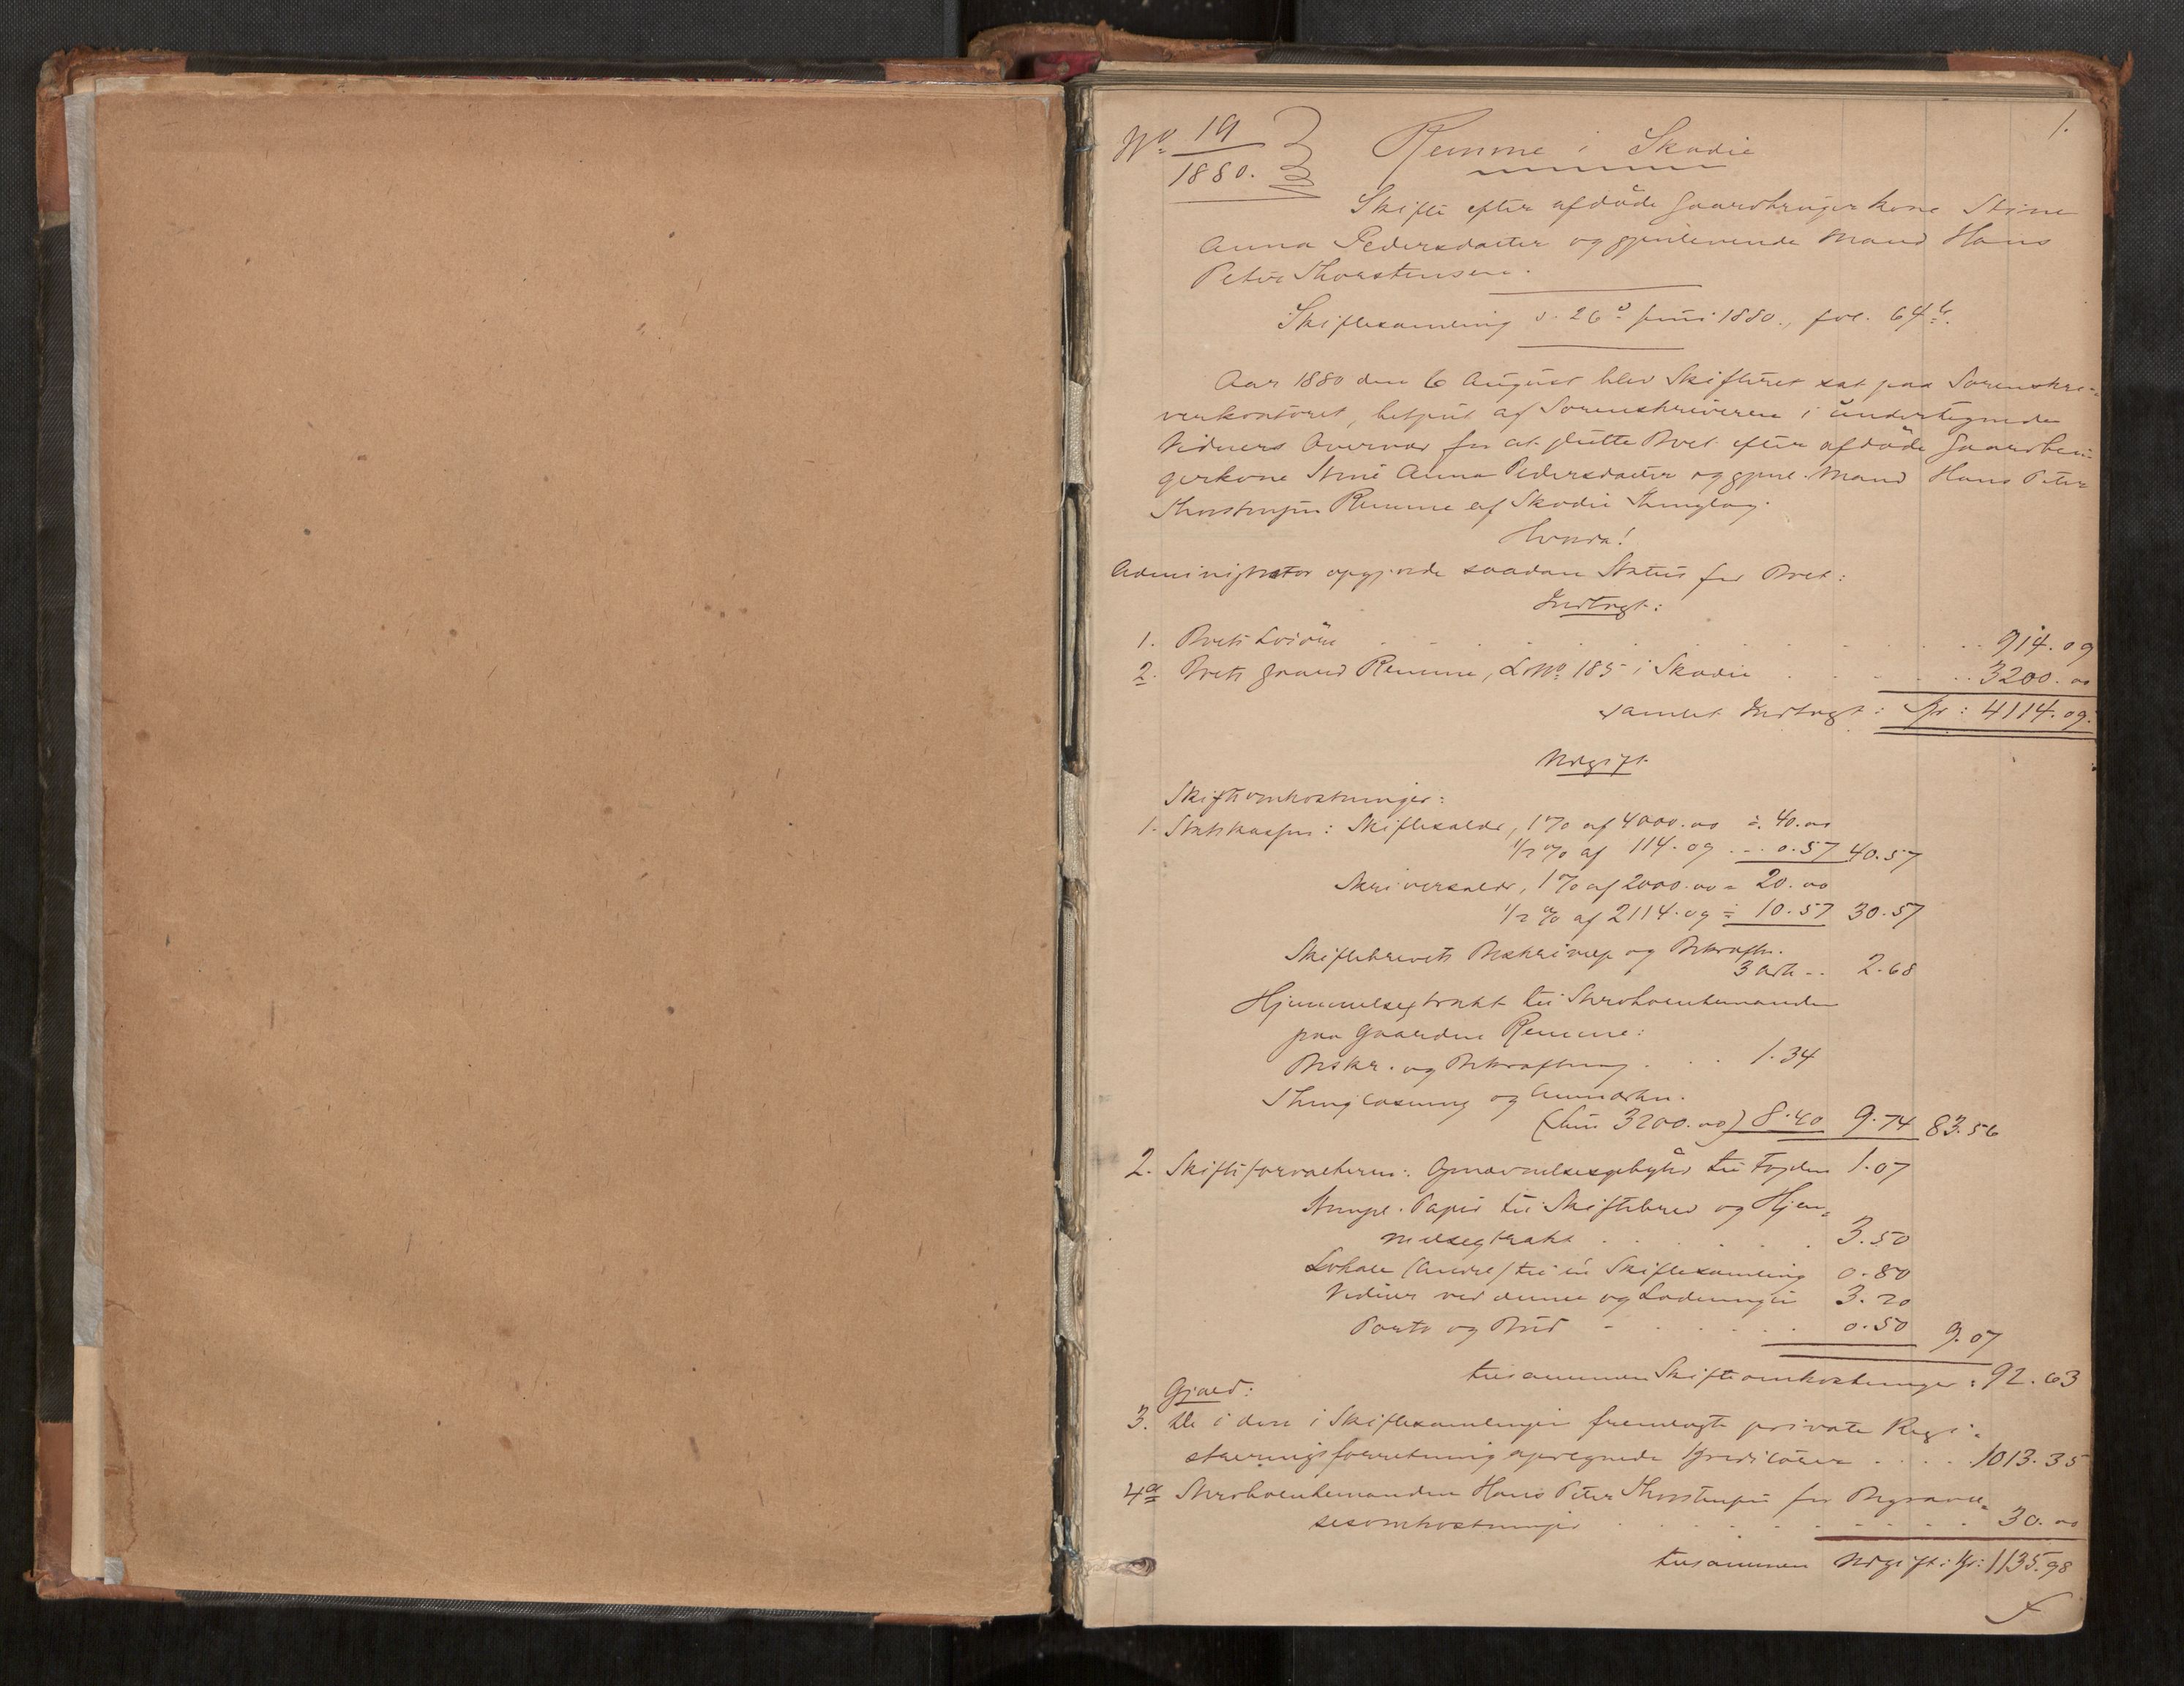 1.
No 19
1880.
Remme i Skodie
Skifte efter afdöde Gaardbrugerkone Stine
Anna Pedersdatter og gjenlevende Mand Hans
Peter Thorstensen.
Skiftesamling d. 26d Juni 1880, fol. 64b.
Aar 1880 den 6 August blev Skifteret sat paa Sorenskri=
verkontoret, betjent af Sorenskriveren i undertegnede
Vidners Overvær for at slutte Boet efter afdöde Gaardbru=
gerkone Stine Anna Pedersdatter og gjenl. Mand Hans Peter
Thorstensen Remme af Skodie Thinglag.
Hvorda!
Administrator opgjorde saadan Status for Boet:
Indtægt:
1. Boets Lösöre . . . . . 914.09
2. Boets Gaard Remme, L.No 185 i Skodie . . . . 3200.00
samlet Indtægt: Kr: 4114.09.
Udgift
Skifteomkostninger:
1. Statskassen: Skiftesalær, 1% af 4000.00 = 40.00
1/2 % af 114.09 - 0.57 40.57
Skriversalær, 1% af 2000.00 = 20.00
1/2 % af 2114.09 = 10.57 30.57
Skiftebrevets Beskrivelse og Bekræftn.
3 Ark - 2.68
Hjemmelsextrakt til Stervboenkemanden
paa Gaarden Remme:
Beskr. og Bekræftning . . 1.34
Thinglæsning og Anmærkn.
(Sum 3200.00) 8.40 9.74 83.56
2. Skifteforvalteren: Opnævnelsesgebyhr til Fogden 1.07
Stempl. Papir til Skiftebrev og Hjem=
melsextrakt . . . . . 3.50
Lokale (Andel) til én Skiftesamling 0.80
Vidner ved denne og Slutningen 3.20
Porto og Bud - . . . . 0.50 9.07
tilsammen Skifteomkostninger: 92.63
Gjæld:
3. De i den i Skiftesamlingen fremlagte private Regi=
streringsforretning opregnede Kreditorer . . . . 1013.35
4de Stervboenkemanden Hans Peter Thorstensen for Begravel=
sesomkostninger . . . . . 30.00
tilsammen Udgift: Kr: 1135.98